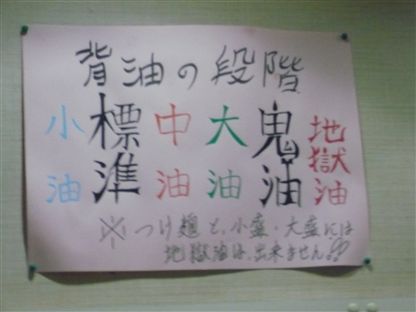 背油の段階
小油 標準 中油 大油 鬼油 地獄油
※つけ麺と、小盛・大盛には
地獄油は、出来ません!!